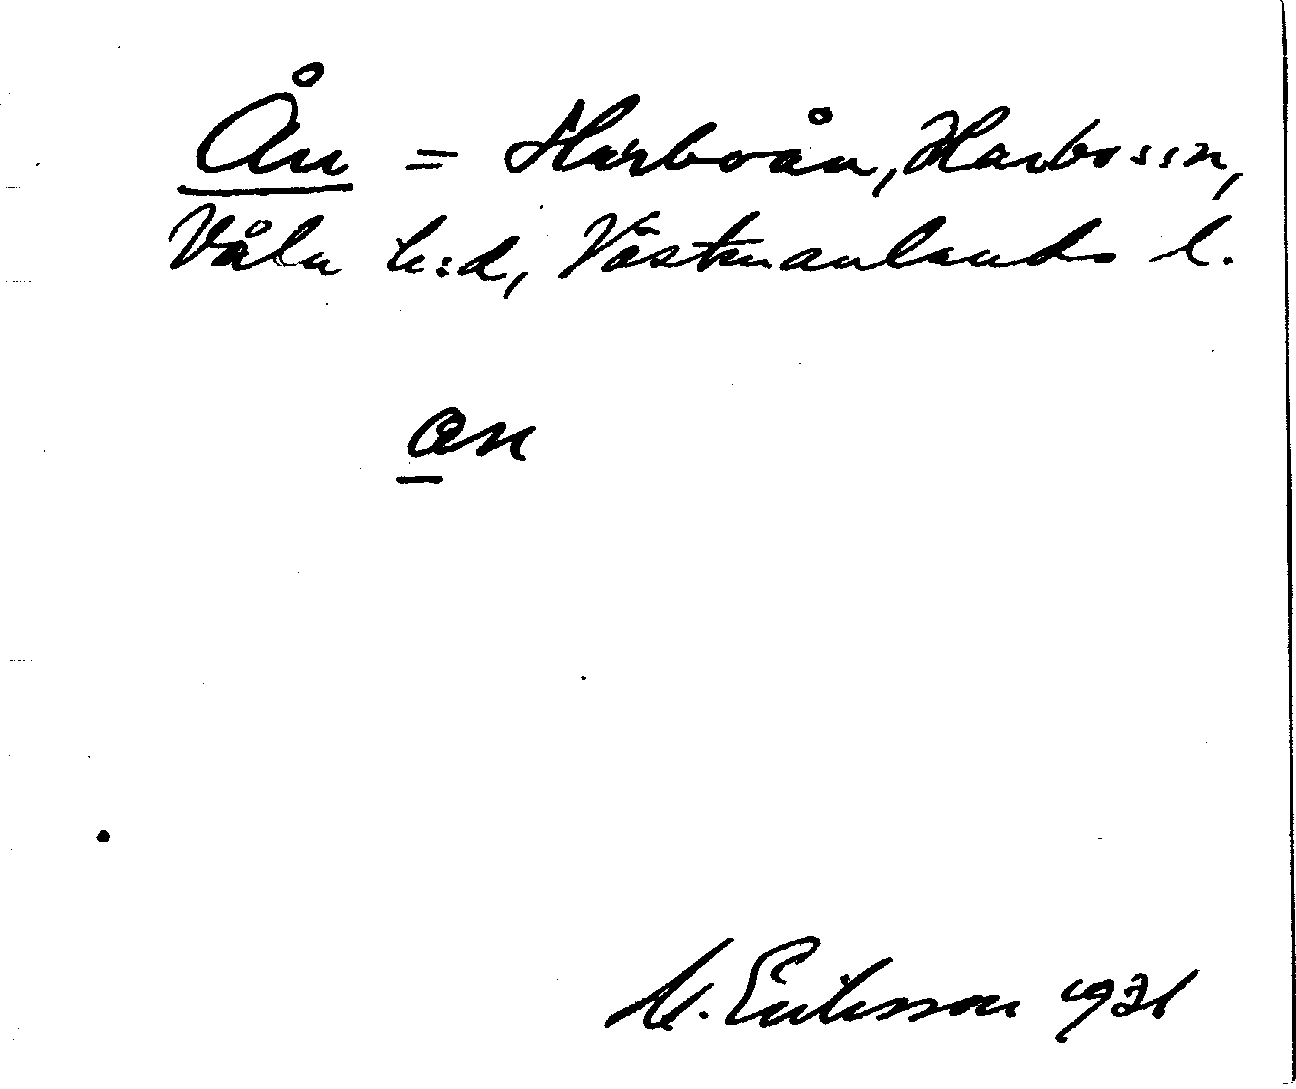 Ån = Harboån, Harbo ssn,
Våla h:d, Västmanlands l.
ɑn
M. Eriksson 1931